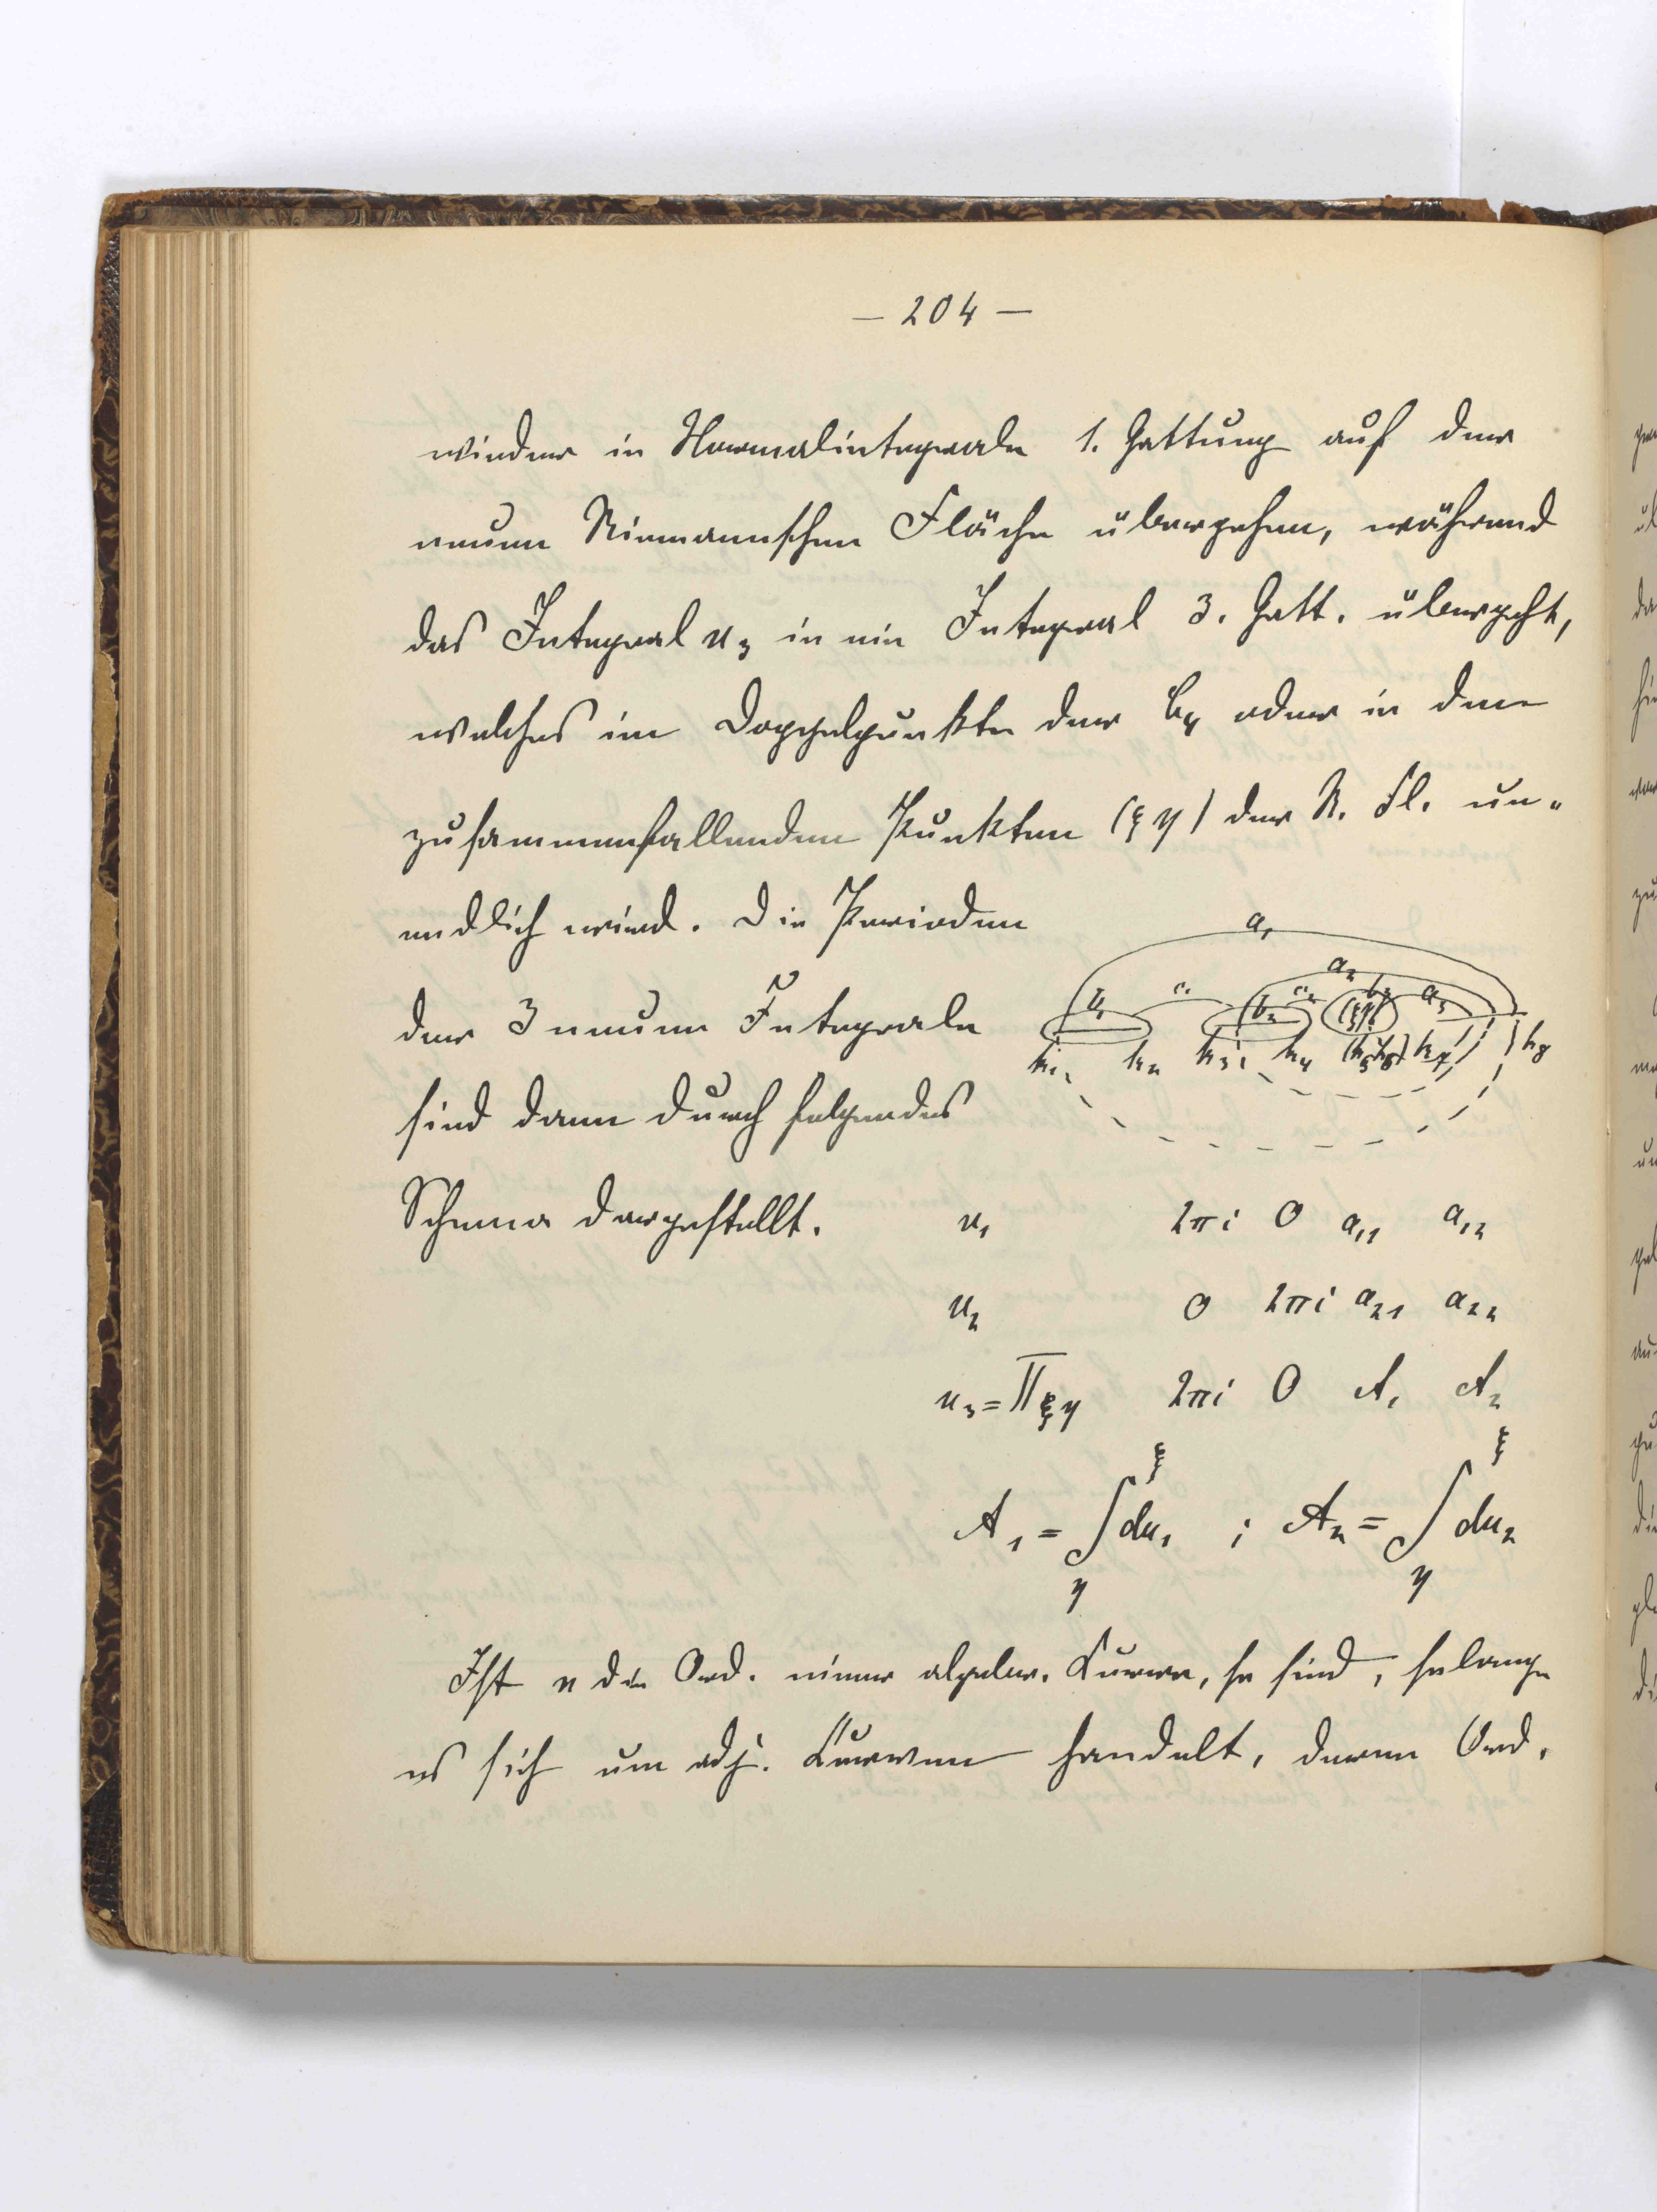 — 204 —
wieder in Normalintegrale 1. Gattung auf der
neuen Riemannschen Fläche übergehen, während
das Integral u₃ in ein Integral 3. Gatt. übergeht,
welches im Doppelpunkte der C₄ oder in den
zusammenfallenden Punkten (ξ η) der R. Fl. un„
endlich wird. Die Perioden
der 3 neuen Integrale
sind dann durch folgendes
Schema dargestellt.
a₁
a₂
b₁ c₁ b₂ c₂ (ξη) b₃ a₃
k₁ k₂ k₃ k₄ (k₅k₆) k₇ k₈
u₁ 2πi 0 a₁₁ a₁₂
u₂ 0 2πi a₂₁ a₂₂
u₃ = Π ξη 2πi 0 A₁ A₂
A₁ = ∫ du₁ ; A₂ = ∫ du₂
ξ ξ
η η
Ist n die Ord. einer algebr. Curve, so sind, solange
es sich um adj. Curven handelt, deren Ord.